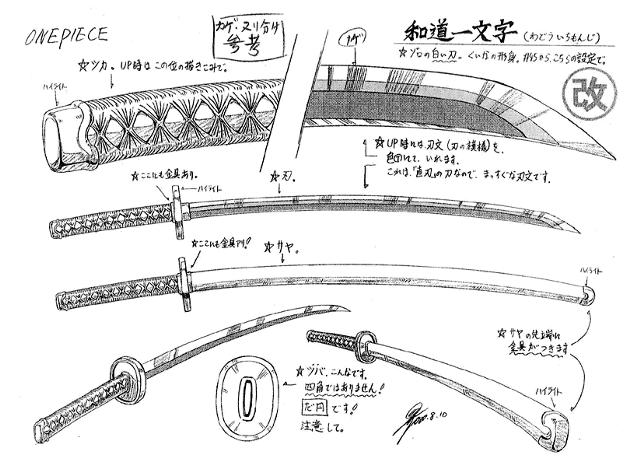 ONEPIECE
カゲ ヌリ分け
参考
和道一文字(わどういちもんじ)
☆ゾロの白い刀。くいなの形身。
改
カゲ
☆ツカ。UP時はこの位の描きこみで。
ハイライト
☆UP時には刃文(刃の模様)を、
色面にて、いれます。
これは、「直刃」の刀なので、まっすぐな刃文です。
☆ここにも金具あり。
ハイライト
☆刃。
☆ここにも金具アリ!
☆サヤ。
ハイライト
☆サヤの先端に
金具がつきます
ハイライト
☆ツバ、こんなです。
四角ではありません!
だ円です!
注意して。
8.10